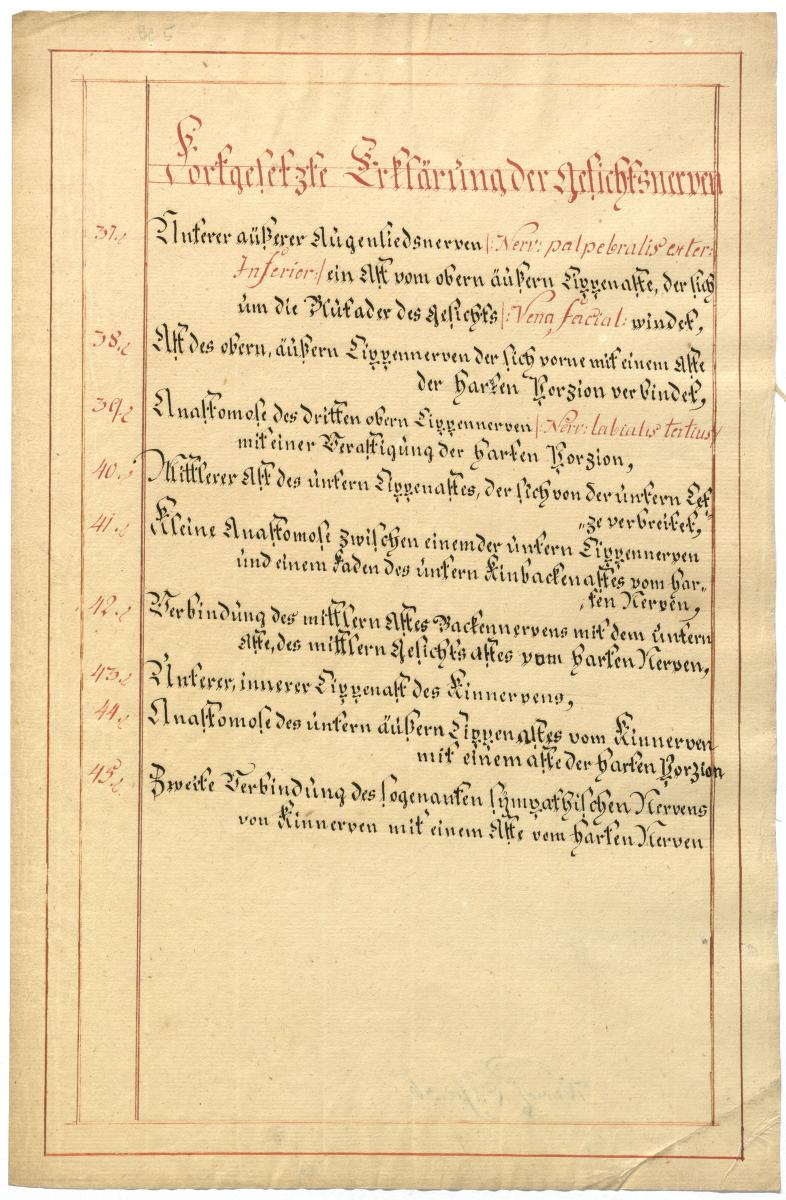 Fortgesetzte Erklärung der Gesichtsnerven
37. Unterer äußerer Augenliedsnerven |: Nerv: palpebralis exter:
Inferior :| ein Ast vom obern äußern Lippenaste, der sich
um die Blutader des Gesichts |: Vena facial: windet,
38. Ast des obern, äußern Lippennerven der sich vorne mit einem Aste
der harten Porzion verbindet,
39. Anastomose des dritten obern Lippennerven |: Nerv: labialis tertius |
mit einer Verastigung der harten Porzion,
40. Mittlerer Ast des untern Lippenastes, der sich von der untern Lef-
ze verbreitet,
41. Kleine Anastomose zwischen einem der untern Lippennerven
und einem Faden des untern Kinbackenastes vom har-
ten Nerven,
42. Verbindung des mittlern Astes Backennervens mit dem untern
Aste, des mittlern Gesichtsastes vom harten Nerven,
43. Unterer, innerer Lippenast des Kinnervens,
44. Anastomose des untern äußern Lippenastes vom Kinnerven
mit einem aste der harten Porzion
45. Zweite Verbindung des sogenanten sympathischen Nervens
von Kinnerven mit einem Aste vom harten Nerven